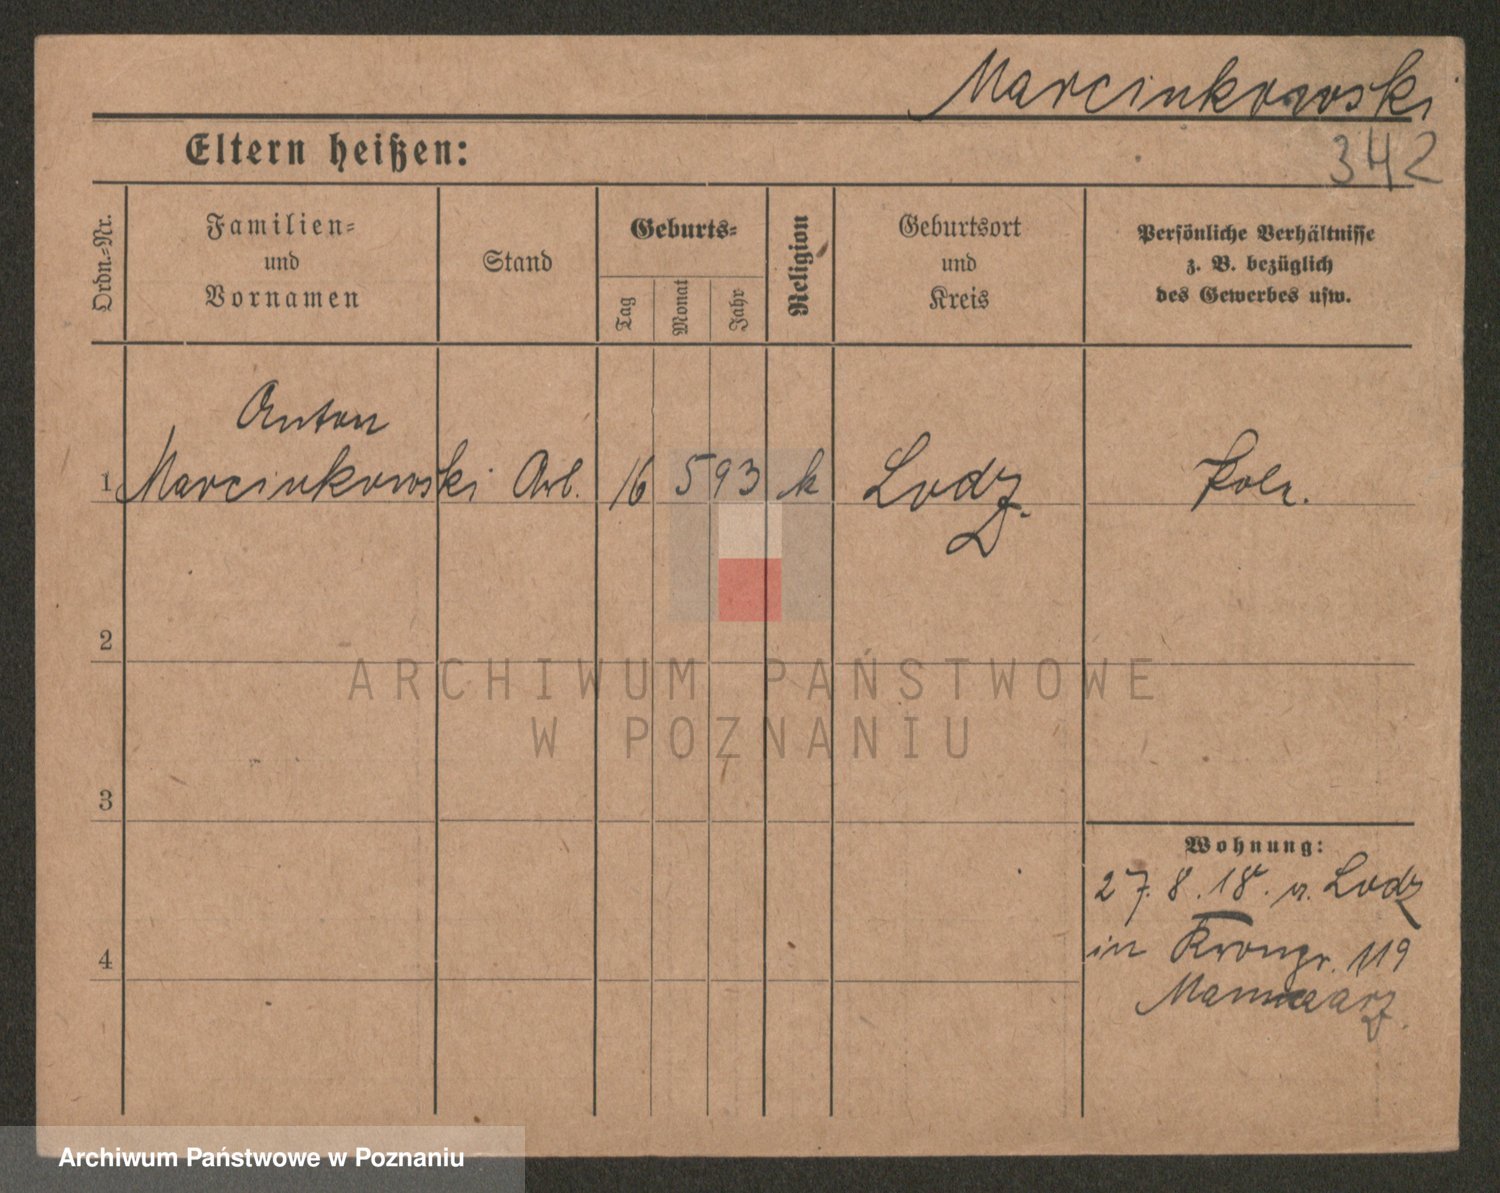 Marcinkowski
Eltern heißen:
342
Ordn.-Nr.
Familien-
und
Vornamen
Stand
Geburts-
Tag
Monat
Jahr
Religion
Geburtsort
und
Kreis
Persönliche Verhältnisse
z. B. bezüglich
des Gewerbes usw.
Anton
1 Marcinkowski Arb. 16 5 93 k Lodz
2
3
4
Wohnung:
27. 8. 18. v. Lodz
in Krongr. 119
ARCHIWUM PAŃSTWOWE
W POZNANIU
Archiwum Państwowe w Poznaniu